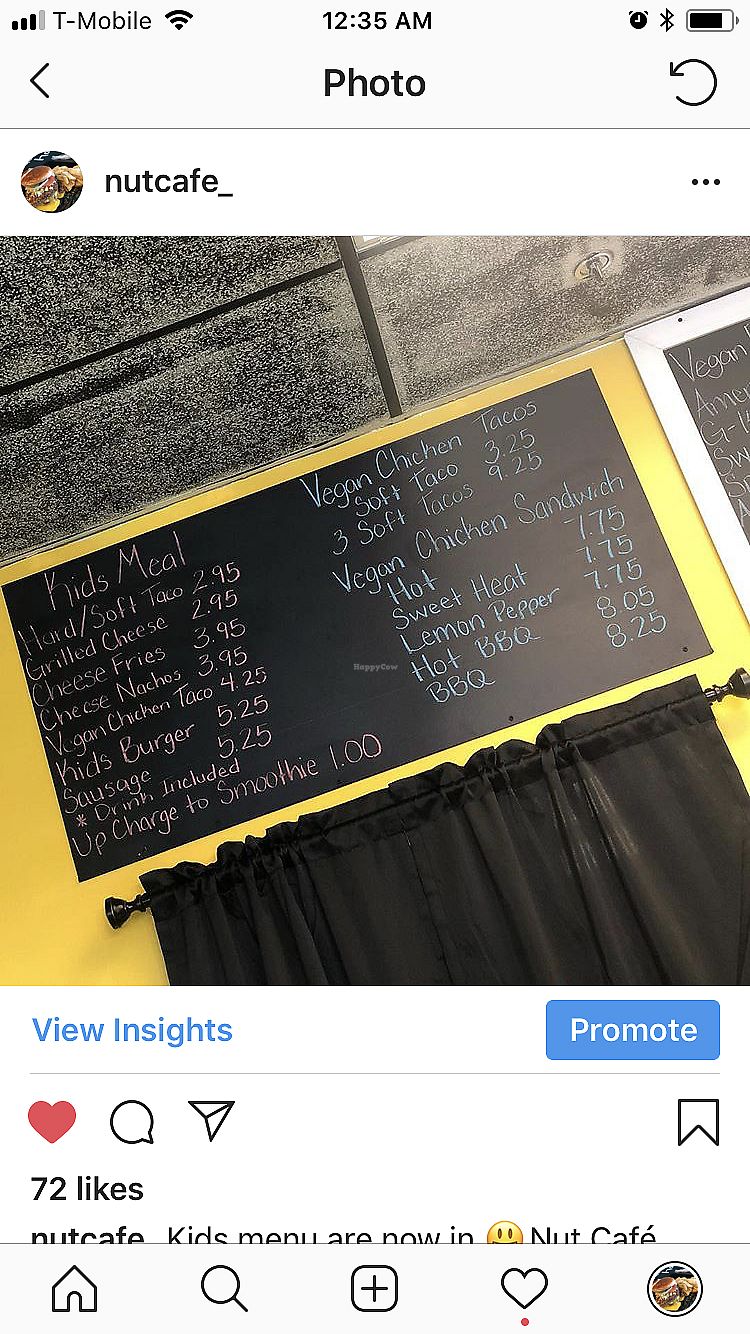 T-Mobile 12:35 AM
Photo
nutcafe_
Kids Meal
Hard/Soft Taco 2.95
Grilled Cheese 2.95
Cheese Fries 3.95
Cheese Nachos 3.95
Vegan Chicken Taco 4.25
Kids Burger 5.25
Sausage 5.25
* Drink Included
Up Charge to Smoothie 1.00
Vegan Chicken Tacos
Soft Taco 3.25
3 Soft Tacos 9.25
Vegan Chicken Sandwich
Hot 7.75
Sweet Heat 7.75
Lemon Pepper 7.75
Hot BBQ 8.05
BBQ 8.25
Vegan
HappyCow
View Insights
Promote
72 likes
nutcafe_ Kids menu are now in 🙂 Nut Café